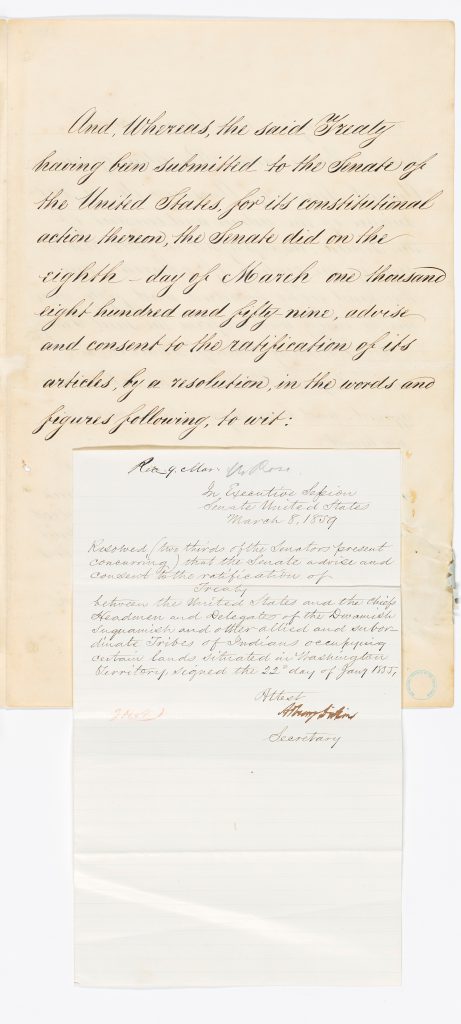 And, Whereas, the said Treaty
having been submitted to the Senate of
the United States, for its constitutional
action thereon, the Senate did on the
eighth - day of March one thousand
eight hundred and fifty nine, advise
and consent to the ratification of its
articles, by a resolution, in the words and
figures following, to wit:
Rec. 9. Mar.
In Executive Session
Senate United States
March 8, 1859
Resolved (two thirds of the Senators present
concurring) that the Senate advise and
consent to the ratification of
Treaty
between the United States and the Chiefs
Headmen and Delegates of the Dwamish
Suquamish and other allied and subor-
dinate Tribes of Indians occupying
certain lands situated in Washington
Territory, signed the 22d day of Jany 1855,
Attest
Asbury Dickins
Secretary